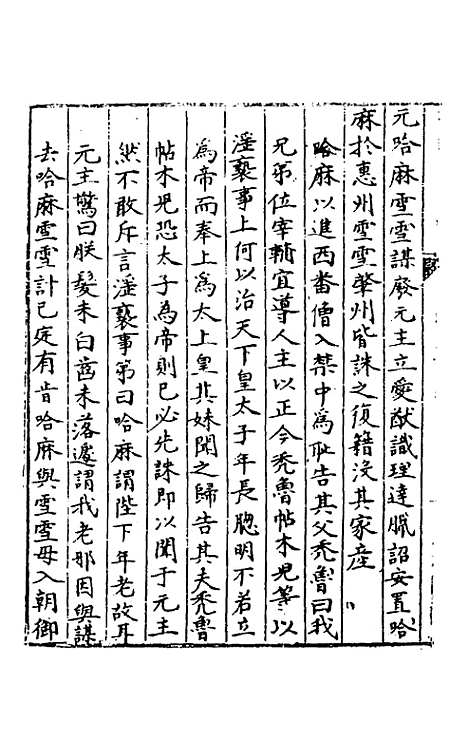 元哈麻雪雪謀廢元主立愛猷識理達臘詔安置哈
麻於惠州雪雪肇州皆誅之復籍沒其家產
哈麻以進西番僧入禁中為耻告其父禿魯曰我
兄弟位宰輔宜導人主以正今禿魯帖木兒等以
淫䙝事上何以治天下皇太子年長聰明不若立
為帝而奉上為太上皇其妹聞之歸告其夫禿魯
帖木兒恐太子為帝則已必先誅即以聞于元主
然不敢斥言淫䙝事第曰哈麻謂陛下年老故耳
元主驚曰朕髮未白齒未落遽謂我老那因與謀
去哈麻雪雪計已定有旨哈麻與雪雪毋入朝御